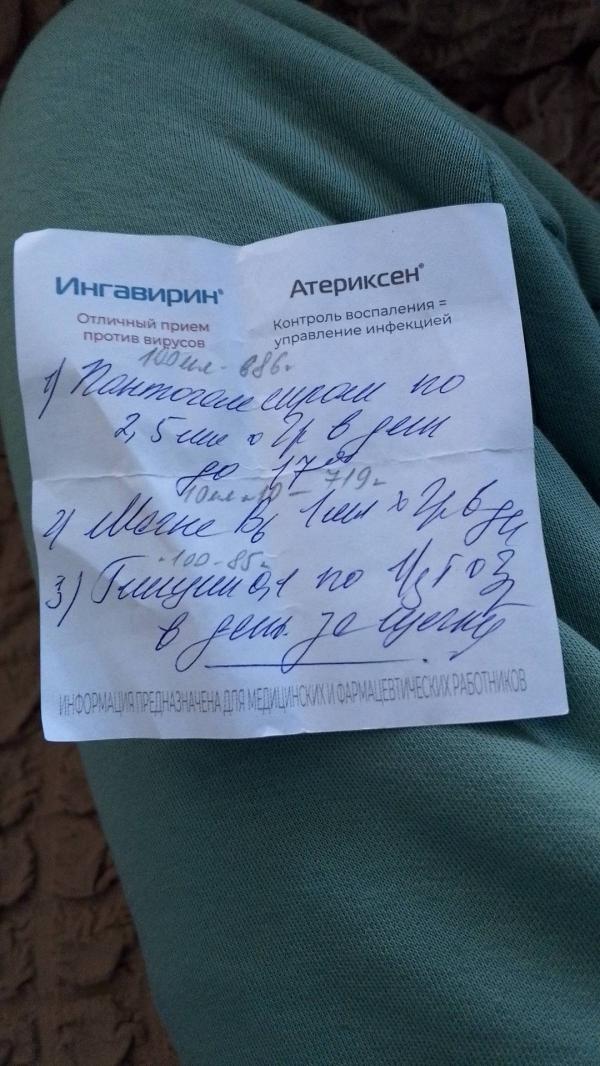 Ингавирин®
Отличный прием
против вирусов
Атериксен®
Контроль воспаления =
управление инфекцией
100 мл -
1) Пантогам сироп по
2,5 мл х 2р в день
до 17 00
10 мл №10 - 719-
2) Магне В6 1 мл х 2р в д
100 - 85
3) Глицин 0,1 по 1/3 т
в день за щечку
ИНФОРМАЦИЯ ПРЕДНАЗНАЧЕНА ДЛЯ МЕДИЦИНСКИХ И ФАРМАЦЕВТИЧЕСКИХ РАБОТНИКОВ